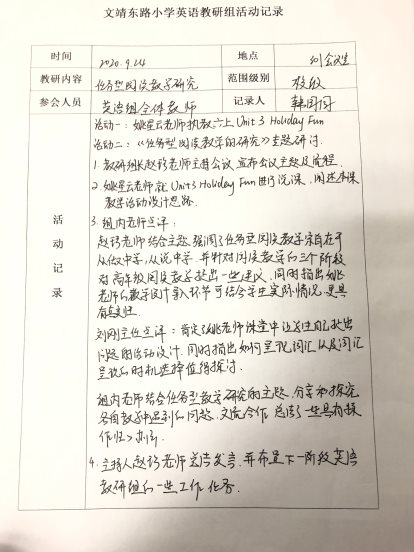 文靖东路小学英语教研组活动记录
时间 2020.9.24 地点 会议室
教研内容 任务型阅读教学研究 范围级别 校级
参会人员 英语组全体教师 记录人 韩
活动一：姚星云老师执教六上 Unit 3 Holiday Fun
活动二：《任务型阅读教学的研究》主题研讨.
1. 教研组长赵老师主持会议，宣布会议主题及流程.
2. 姚星云老师就 Unit 3 Holiday Fun 进行说课，阐述本课
教学活动设计思路.
活动记录
3. 组内老师点评：
赵老师结合主题，强调了任务型阅读教学
从做中学，从说中学，并针对阅读教学的三个阶段
对高年级阅读教学提出一些建议，同时指出姚
老师的教学设计环节可结合学生实际情况，更具
有真实性.
刘刚主任点评：肯定了姚老师课堂中让学生自己提出
问题的活动设计，同时指出如何呈现词汇以及词汇
呈现的时机选择值得探讨.
组内老师结合任务型教学研究的主题，分享和探究
各自教学中遇到的问题，交流合作，总结了一些具有操
作性
4. 主持人赵老师总结发言，并布置下一阶段英语
教研组的一些工作任务.